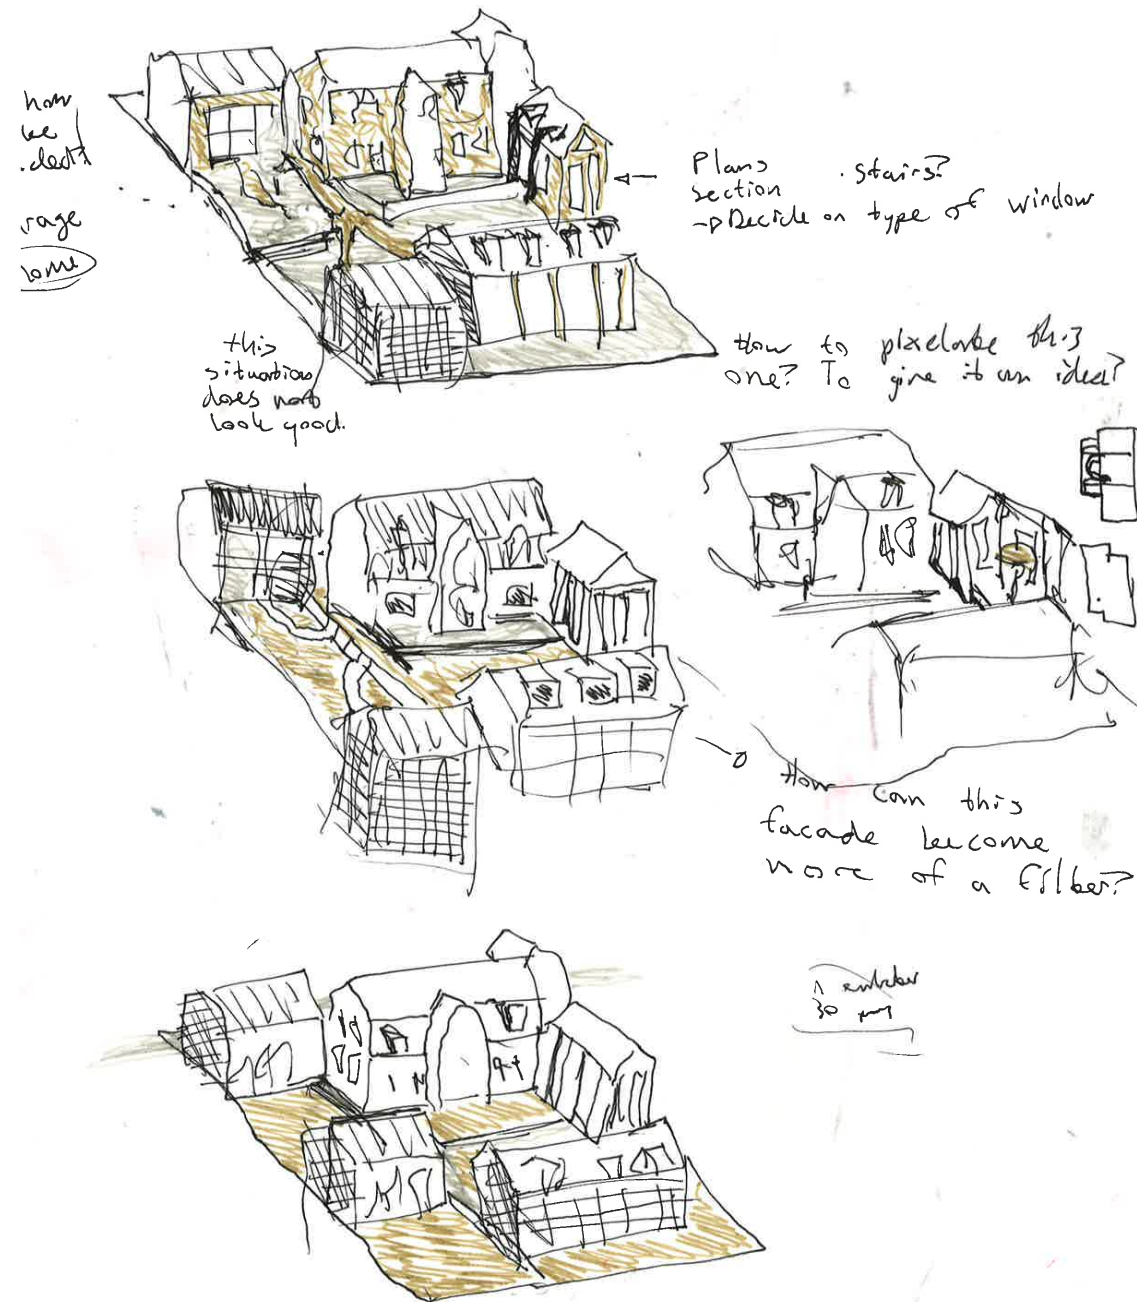 how
be
rage
Plans
section . stairs?
→ Decide on type of window
this
situation
does not
look good.
How to this
one? To give it an idea?
How can this
facade become
more of a filter?
30